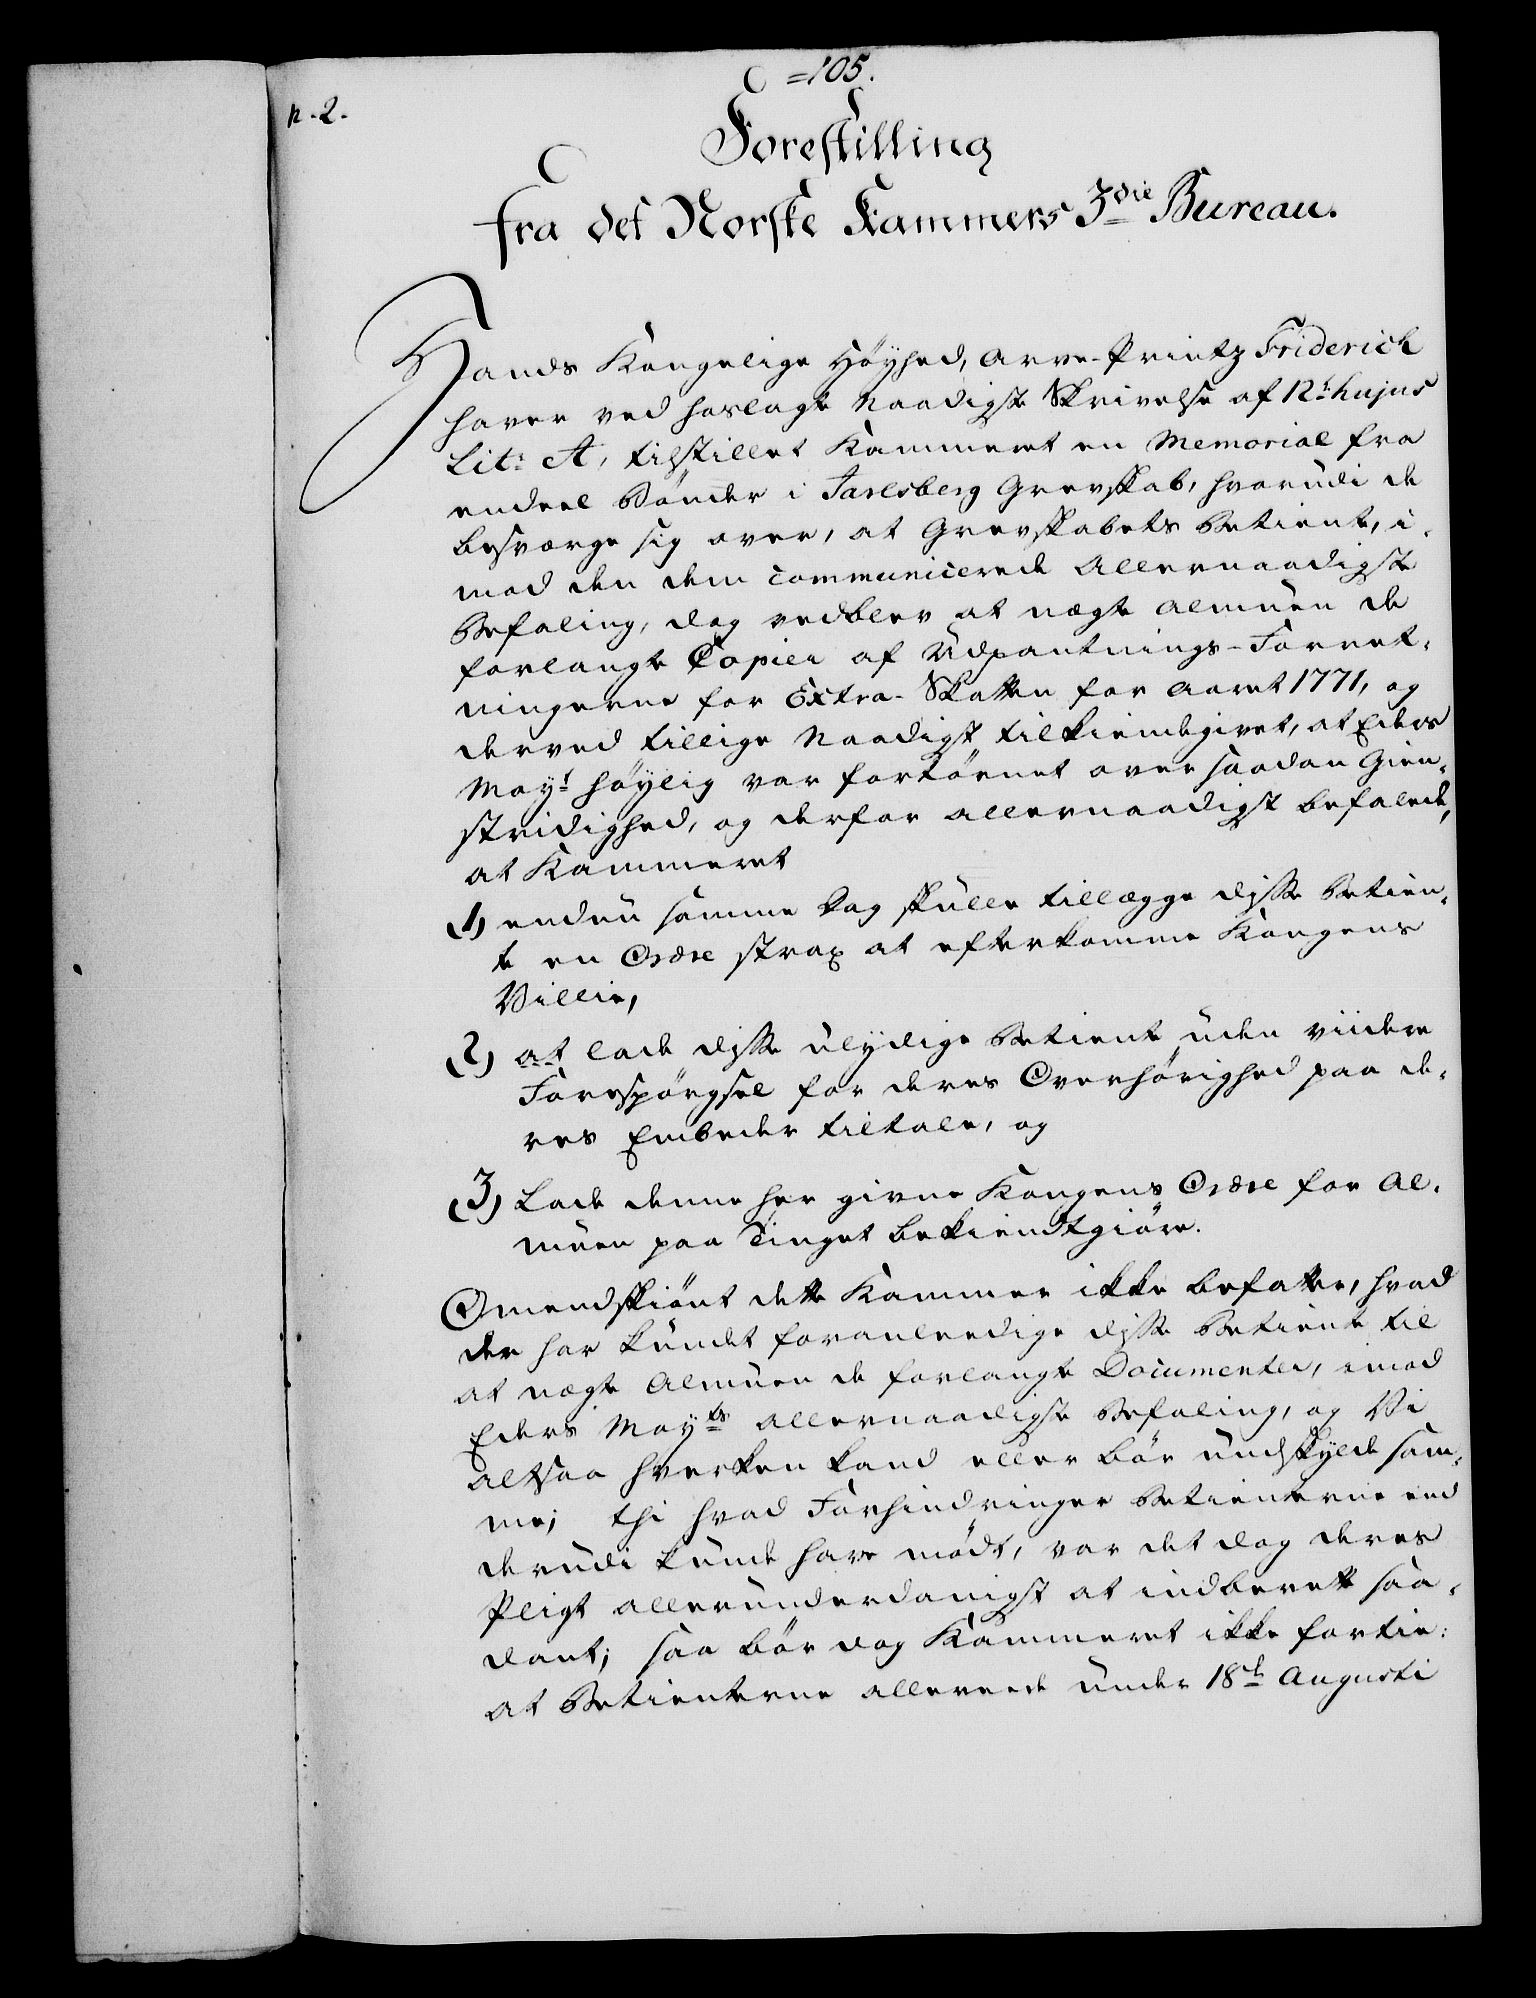 =105.
n. 2.
Forestilling
fra det Norske Kammers 3die Bureau.
Hands Kongelige Höyhed, Arve-Printz Friderich
haver ved hoslagte Naadigste Skrivelse af 12t hujus
Lit: A, tilstillet Kammeret en Memorial fra
endeel Bönder i Jarlsberg Grevskab, hvorudi de
besværge sig over, at Grevskabets Betiente, i-
mod den dem communicerede Allernaadigste
Befaling, dog vedblev at nægte Almuen de
forlangte Copier af Udpantnings-Forret-
ningerne for Extra-Skatten for Aaret 1771, og
derved tillige Naadigst tilkiendegivet, at Eders
Mayt höylig var fortörnet over saadan Gien-
stridighed, og derfor allernaadigst befalede,
at Kammeret
1) endnu samme Dag skulle tillægge disse Betien-
te en Ordre strax at efterkomme Kongens
Villie,
2) at lade disse ulydige Betiente uden viidere
Forespörgsel for deres Overhörighed paa de-
res Embeder tiltale, og
3) Lade denne her givne Kongens Ordre for Al-
muen paa Tinget bekiendtgiöre.
Omendskiönt dette Kammer ikke befatter, hvad
der har kundet foranleedige disse Betiente til
at nægte Almuen de forlangte Documenter, imod
Eders Mayts allernaadigste Befaling, og Vi
altsaa hverken kand eller bör undskylde sam-
me; thi hvad Forhindringer Betienterne end
derudi kunde have mödt, var det dog deres
Pligt allerunderdanigst at indberette saa-
dant; saa bör dog Kammeret ikke fortie:
at Betienterne allereede under 18de Augusti